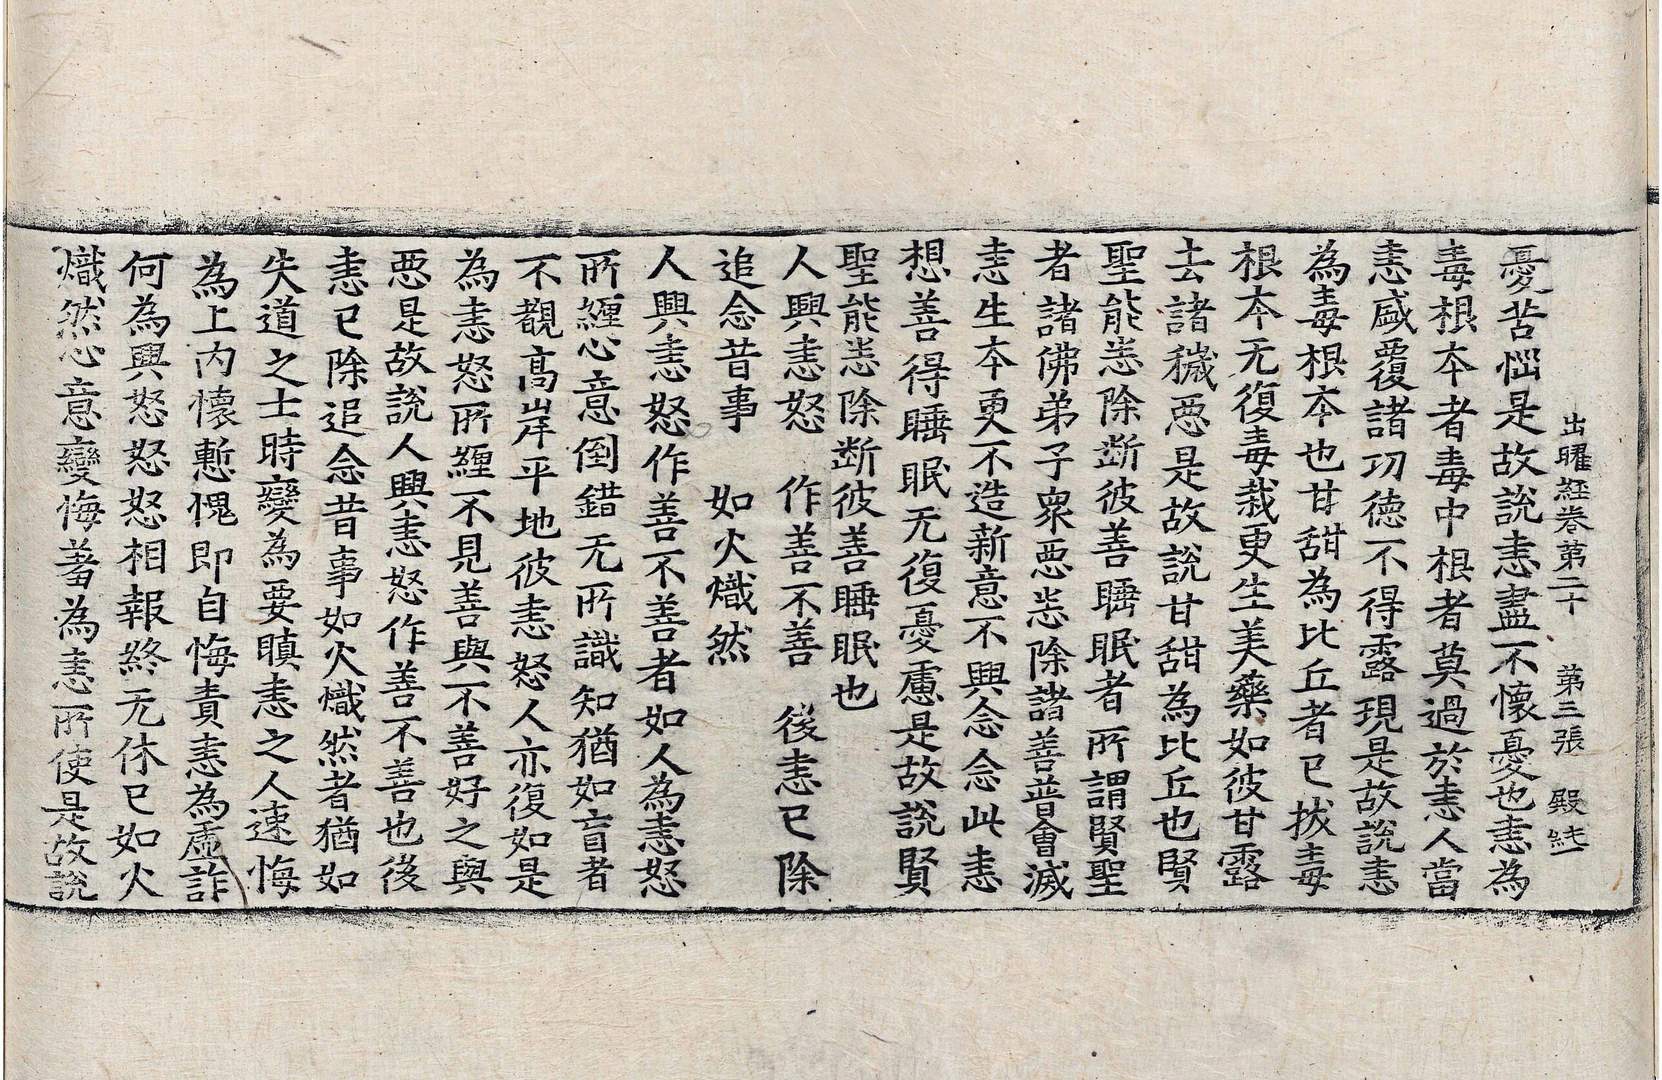 出曜經卷第二十　第三張　殿
憂苦惱是故說恚盡不懷憂也恚為
毒根本者毒中根者莫過於恚人當
恚盛覆諸功德不得露現是故說恚
為毒根本也甘甜為比丘者已拔毒
根本无復毒栽更生美藥如彼甘露
去諸穢惡是故說甘甜為比丘也賢
聖能恚除斷彼善睡眠者所謂賢聖
者諸佛弟子衆惡恚除諸善普會滅
恚生本更不造新意不興念念此恚
想善得睡眠无復憂慮是故說賢
聖能恚除斷彼善睡眠也
人興恚怒　作善不善　後恚已除
追念昔事　如火熾然
人興恚怒作善不善者如人為恚怒
所纏心意倒錯无所識知猶如盲者
不覩高岸平地彼恚怒人亦復如是
為恚怒所纏不見善與不善好之與
惡是故說人興恚怒作善不善也後
恚已除追念昔事如火熾然者猶如
失道之士時變為要瞋恚之人速悔
為上內懷慙愧即自悔責恚為虛詐
何為興怒怒怒相報終无休已如火
熾然心意變悔羞為恚所使是故說